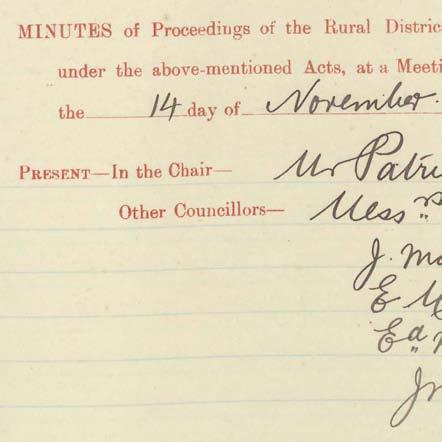 MINUTES of Proceedings of the Rural Distric
under the above-mentioned Acts, at a Meeti
the 14 day of November.
PRESENT—In the Chair— Mr Patri
Other Councillors— Messrs
J. Mc
E
Ed
Jn